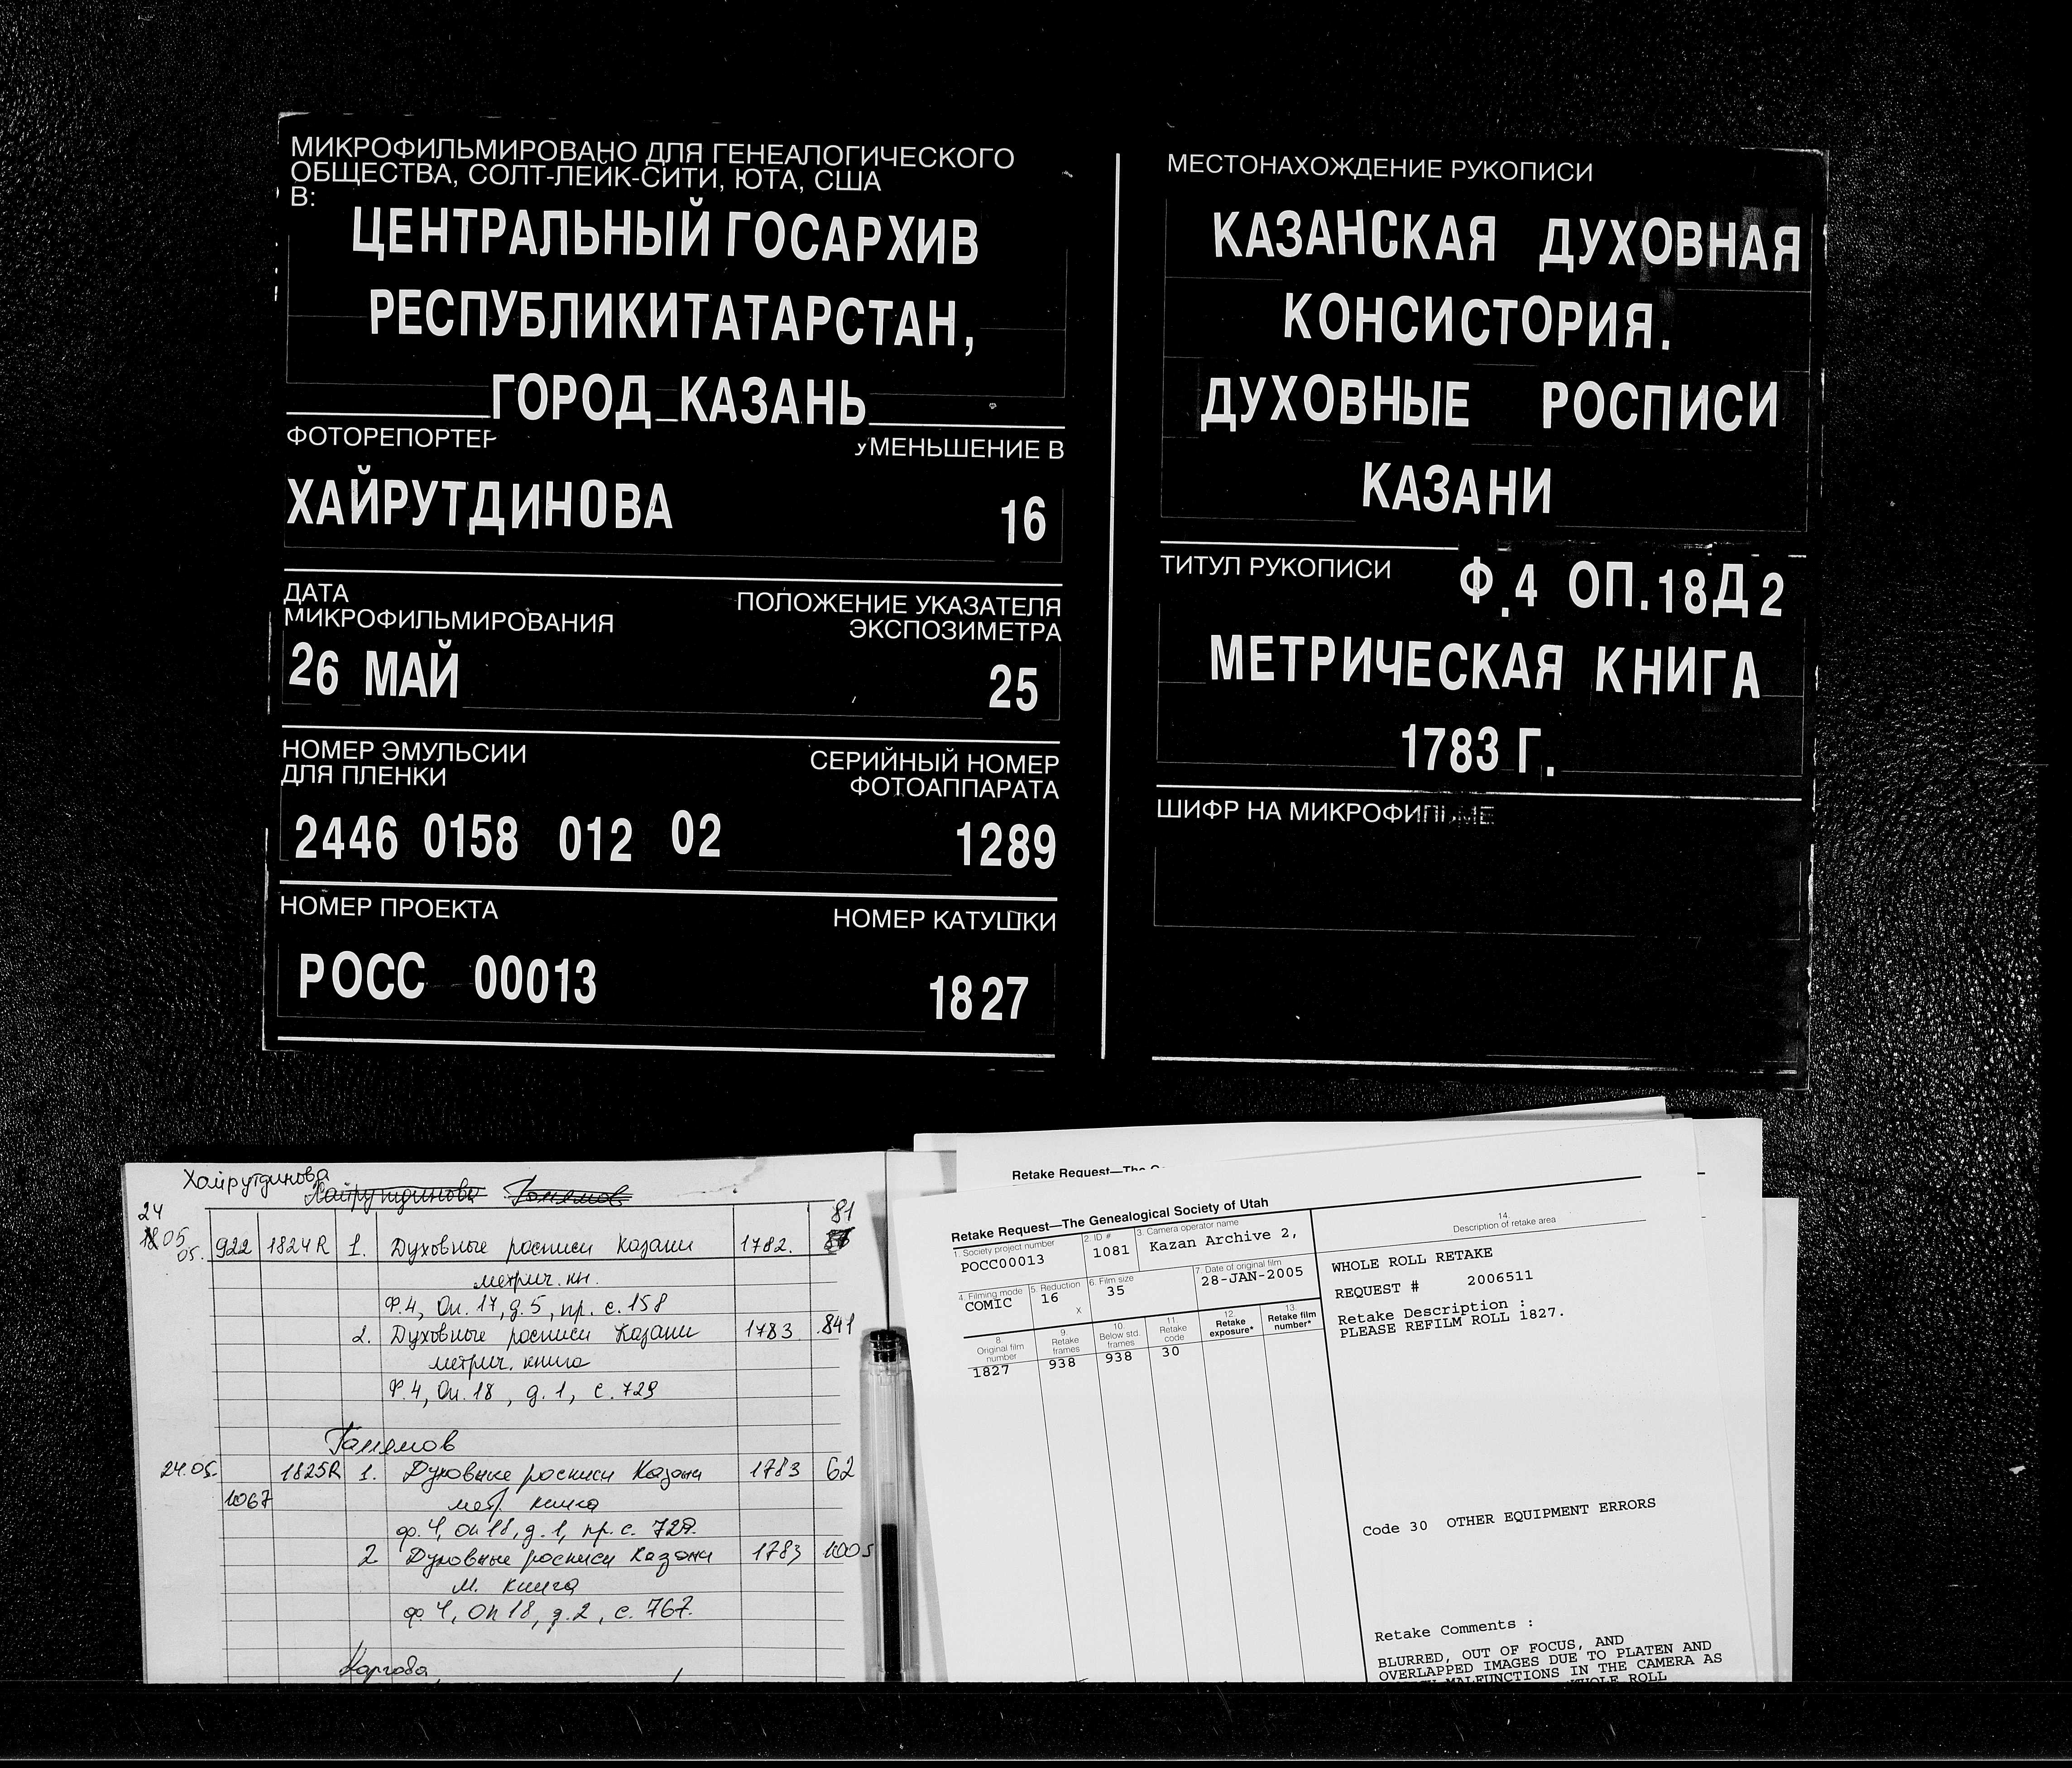 МИКРОФИЛЬМИРОВАНО ДЛЯ ГЕНЕАЛОГИЧЕСКОГО
ОБЩЕСТВА, СОЛТ-ЛЕЙК-СИТИ, ЮТА, США
В:
ЦЕНТРАЛЬНЫЙ ГОСАРХИВ
РЕСПУБЛИКИТАТАРСТАН,
ГОРОД КАЗАНЬ
ФОТОРЕПОРТЕР УМЕНЬШЕНИЕ В
ХАЙРУТДИНОВА 16
ДАТА
МИКРОФИЛЬМИРОВАНИЯ
ПОЛОЖЕНИЕ УКАЗАТЕЛЯ
ЭКСПОЗИМЕТРА
26 МАЙ 25
НОМЕР ЭМУЛЬСИИ
ДЛЯ ПЛЕНКИ
СЕРИЙНЫЙ НОМЕР
ФОТОАППАРАТА
2446 0158 012 02 1289
НОМЕР ПРОЕКТА НОМЕР КАТУШКИ
РОСС 00013 1827
МЕСТОНАХОЖДЕНИЕ РУКОПИСИ
КАЗАНСКАЯ ДУХОВНАЯ
КОНСИСТОРИЯ.
ДУХОВНЫЕ РОСПИСИ
КАЗАНИ
ТИТУЛ РУКОПИСИ Ф.4 ОП.18Д2
МЕТРИЧЕСКАЯ КНИГА
1783 Г.
ШИФР НА МИКРОФИЛЬМЕ
Хайрутдинова
Хайрутдинова
24 81
05. 922 1824R 1. Духовные росписи Казани 1782.
метрич. кн.
Ф.4, Оп.17, д.5, пр. с.158
2. Духовные росписи Казани 1783 841
метрич. книга
Ф.4, Оп.18, д.1, с.729
24.05. 1825R 1. Духовные росписи Казани 1783 62
1067 метр. книга
ф.4, оп18, д.1, пр. с. 729.
2 Духовные росписи Казани 1783 1005
м. книга
ф.4, оп18, д.2, с.767.
Retake Request—The
Retake Request—The Genealogical Society of Utah
1. Society project number 2. ID # 3. Camera operator name
POCC00013 1081 Kazan Archive 2,
4. Filming mode 5. Reduction 6. Film size 7. Date of original film
COMIC 16 x 35 28-JAN-2005
8. Original film number 9. Retake frames 10. Below std. frames 11. Retake code 12. Retake exposure* 13. Retake film number*
1827 938 938 30
14.
Description of retake area
WHOLE ROLL RETAKE
REQUEST # 2006511
Retake Description :
PLEASE REFILM ROLL 1827.
Code 30 OTHER EQUIPMENT ERRORS
Retake Comments :
BLURRED, OUT OF FOCUS, AND
OVERLAPPED IMAGES DUE TO PLATEN AND
MALFUNCTIONS IN THE CAMERA AS
WHOLE ROLL